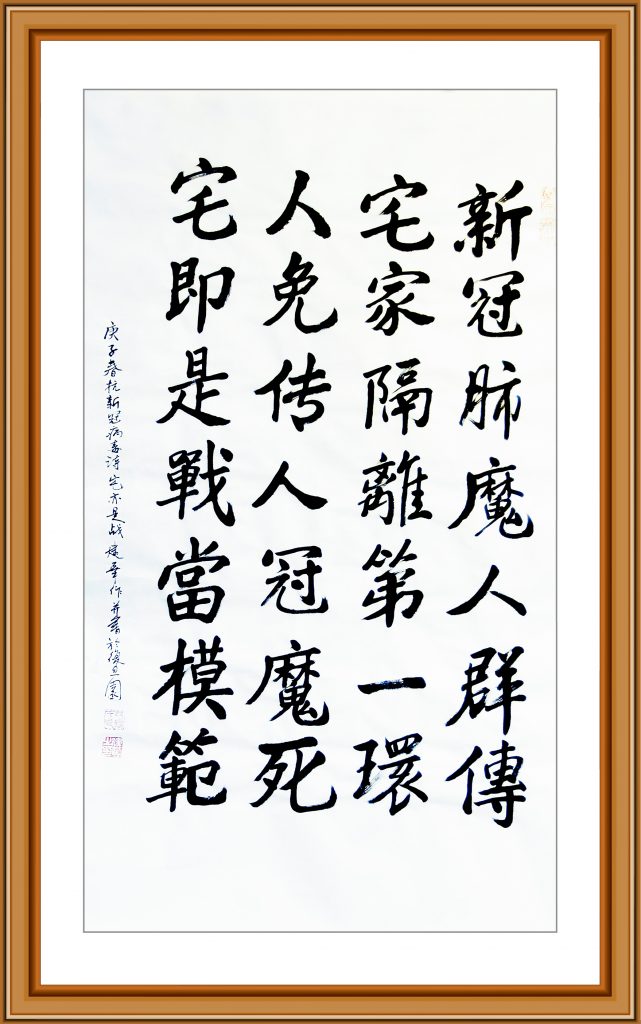 新冠肺魔人群傳
宅家隔離第一環
人免传人冠魔死
宅即是戰當模範
庚子春抗新冠病毒诗宅亦是战建華作并書於復旦園